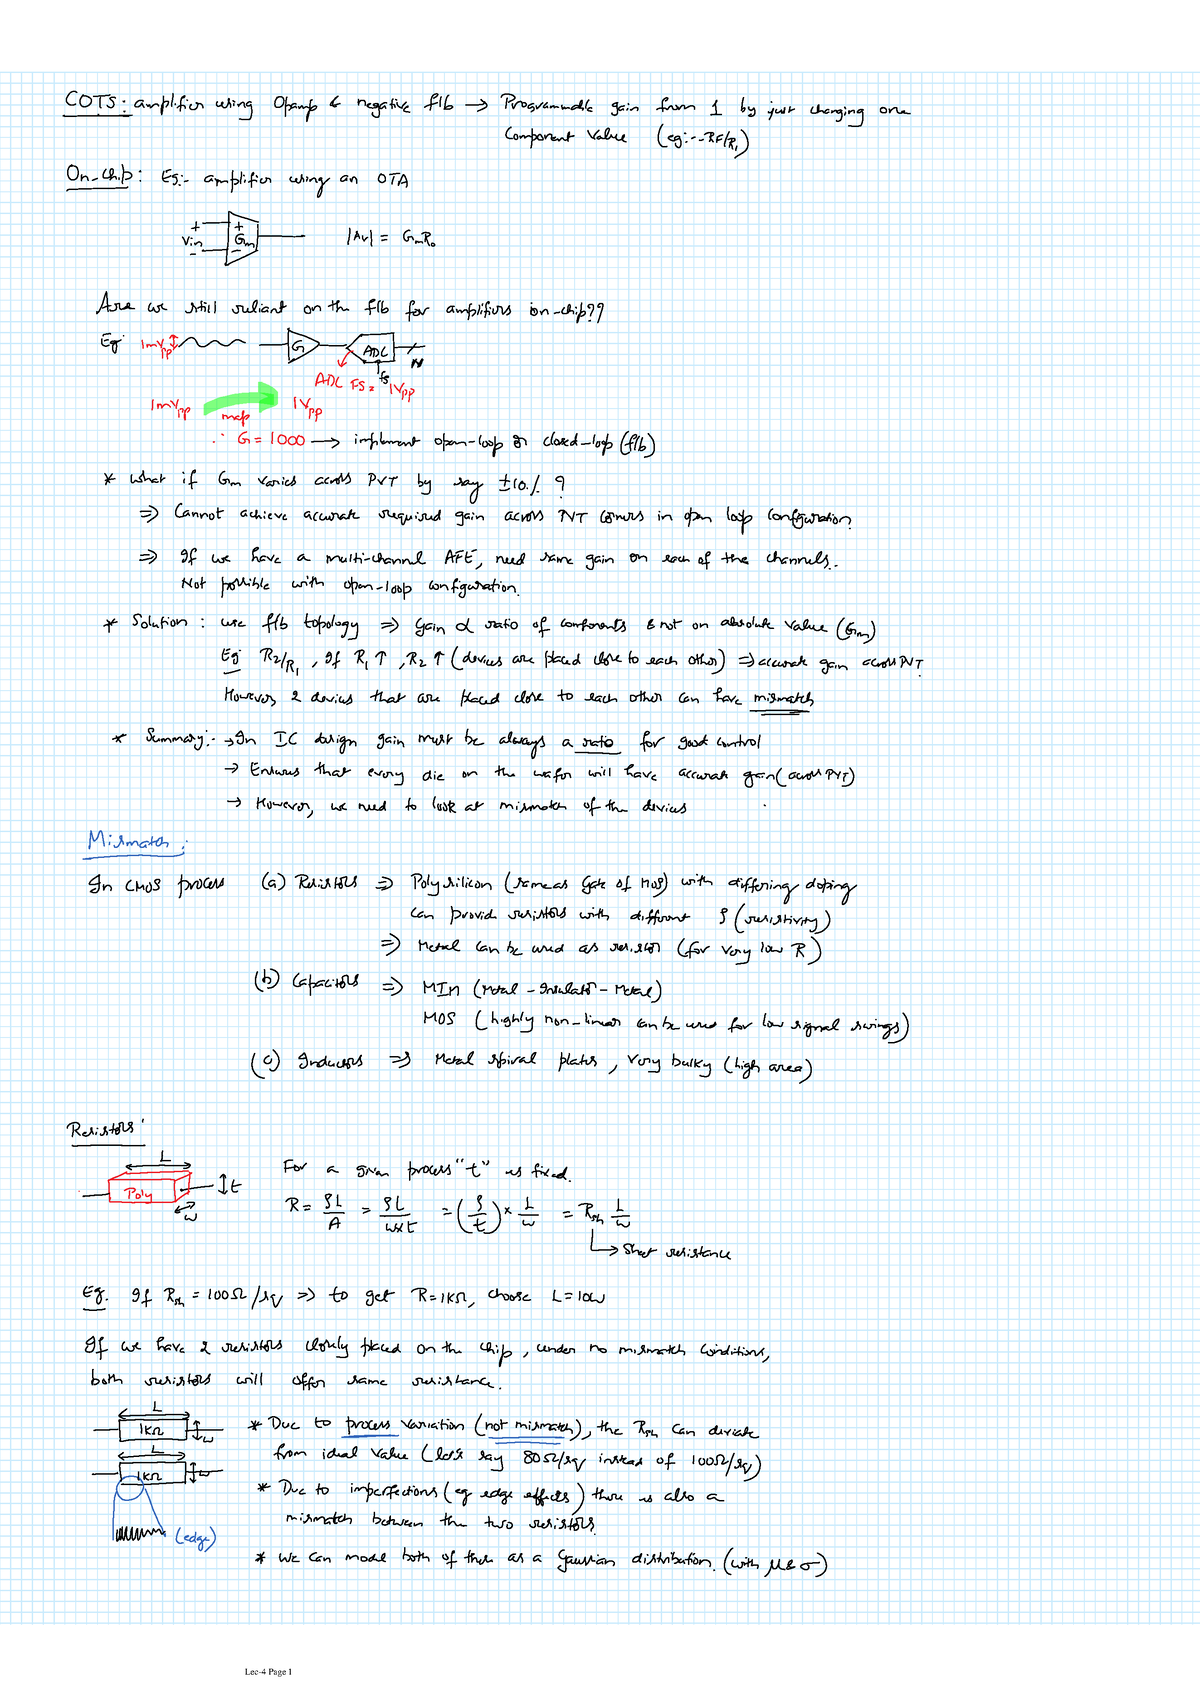 COTS: amplifier using Opamp & negative f/b → Programmable gain from 1 by just changing one
Component Value (eg:- -RF/R1)
On-chip: Eg:- amplifier using an OTA
+ Vin - + Gm - |Av| = GmRo
Are we still reliant on the f/b for amplifiers on-chip??
Eg 1mVpp G ADC N
fs
ADC FS = 1Vpp
1mVpp map 1Vpp
∴ G = 1000 → implement open-loop or closed-loop (f/b)
* What if Gm varies across PVT by say ±10% ?
⇒ Cannot achieve accurate required gain across PVT corners in open loop configuration.
⇒ If we have a multi-channel AFE, need same gain on each of the channels.
Not possible with open-loop configuration.
* Solution : use f/b topology ⇒ Gain α ratio of components & not on absolute value (Gm)
Eg R2/R1, If R1 ↑, R2 ↑ (devices are placed close to each other) ⇒ accurate gain across PVT.
However, 2 devices that are placed close to each other can have mismatch
* Summary:- → In IC design gain must be always a ratio for good control
→ Ensures that every die on the wafer will have accurate gain (across PVT)
→ However, we need to look at mismatch of the devices
Mismatch :
In CMOS process (a) Resistors ⇒ Polysilicon (same as Gate of MOS) with differing doping
can provide resistors with different ρ (resistivity)
⇒ Metal can be used as resistor (for very low R)
(b) Capacitors ⇒ MIM (Metal - Insulator - Metal)
MOS (highly non-linear can be used for low signal swings)
(c) Inductors ⇒ Metal spiral plates, very bulky (high area)
Resistors:
L
Poly t
W
For a given process "t" is fixed.
R = ρL/A = ρL/W×t = (ρ/t) × L/W = Rsh L/W
→ Sheet resistance
Eg. If Rsh = 100Ω/sq ⇒ to get R=1KΩ, choose L = 10W
If we have 2 resistors closely placed on the chip, under no mismatch conditions,
both resistors will offer same resistance.
L
1KΩ W
L
1KΩ W
(edge)
* Due to process variation (not mismatch), the Rsh can deviate
from ideal value (lets say 80Ω/sq instead of 100Ω/sq)
* Due to imperfections (eg edge effects) there is also a
mismatch between the two resistors.
* We can model both of them as a Gaussian distribution. (with μ & σ)
Lec-4 Page 1